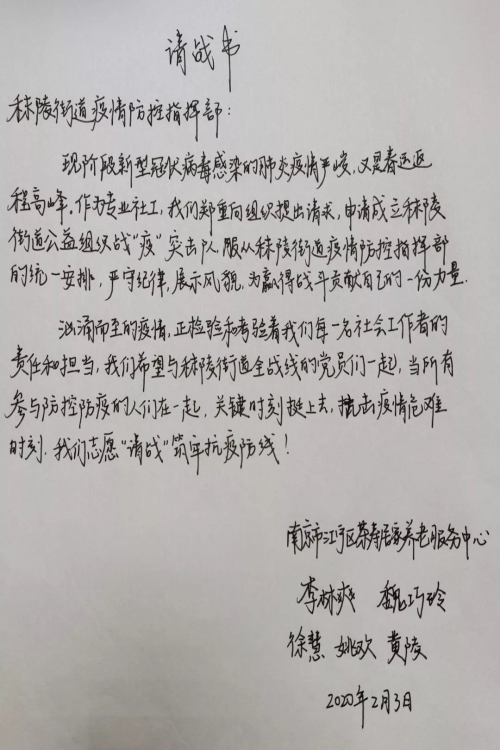 请战书
秣陵街道疫情防控指挥部：
现阶段新型冠状病毒感染的肺炎疫情严峻，又灵春运返
程高峰。作为专业社工，我们郑重向组织提出请求，申请成立秣陵
街道公益组织战“疫”突击队，服从秣陵街道疫情防控指挥部
的统一安排，严守纪律，展示风貌，为赢得战斗贡献自己的一份力量。
汹涌而至的疫情，正检验和考验着我们每一名社会工作者的
责任和担当，我们希望与秣陵街道全战线的党员们一起，当所有
参与防控防疫的人们在一起，关键时刻挺上去，击疫情危难
时刻。我们志愿“请战”筑牢抗疫防线！
南京市江宁区茶寿居家养老服务中心
李林爽 魏巧玲
徐慧 姚欢 黄陵
2020年2月3日